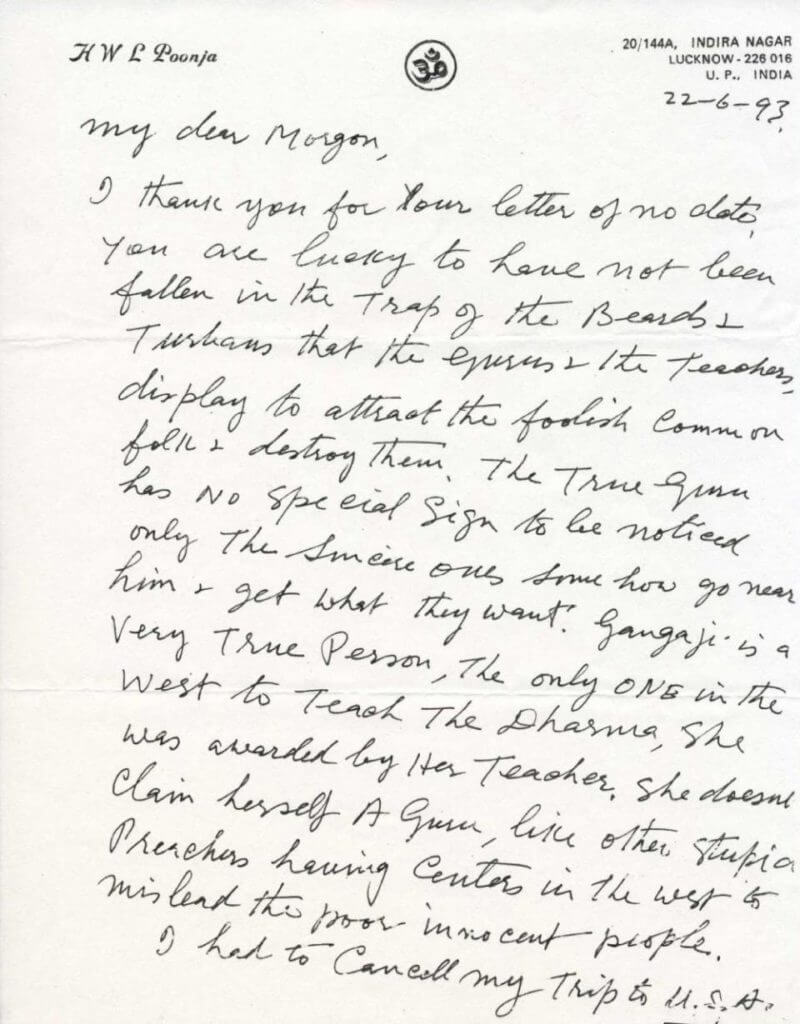 H W L Poonja
ॐ
20/144A, INDIRA NAGAR
LUCKNOW - 226 016
U. P., INDIA
22-6-93.
My dear Morgon,
I thank you for Your letter of no date.
You are lucky to have not been
fallen in the Trap of the Beards &
Turbans that the Gurus & the Teachers,
display to attract the foolish Common
folk & destroy them. The True Guru
has NO Special Sign to be noticed
only The Sincere ones some how go near
him & get what they want. Gangaji is a
Very True Person, The only ONE in the
West to Teach The Dharma, She
was awarded by Her Teacher. She doesnt
Claim herself A Guru, like other Stupid
Preachers having Centers in the west to
mislead the poor innocent people.
I had to Cancell my Trip to U.S.A.